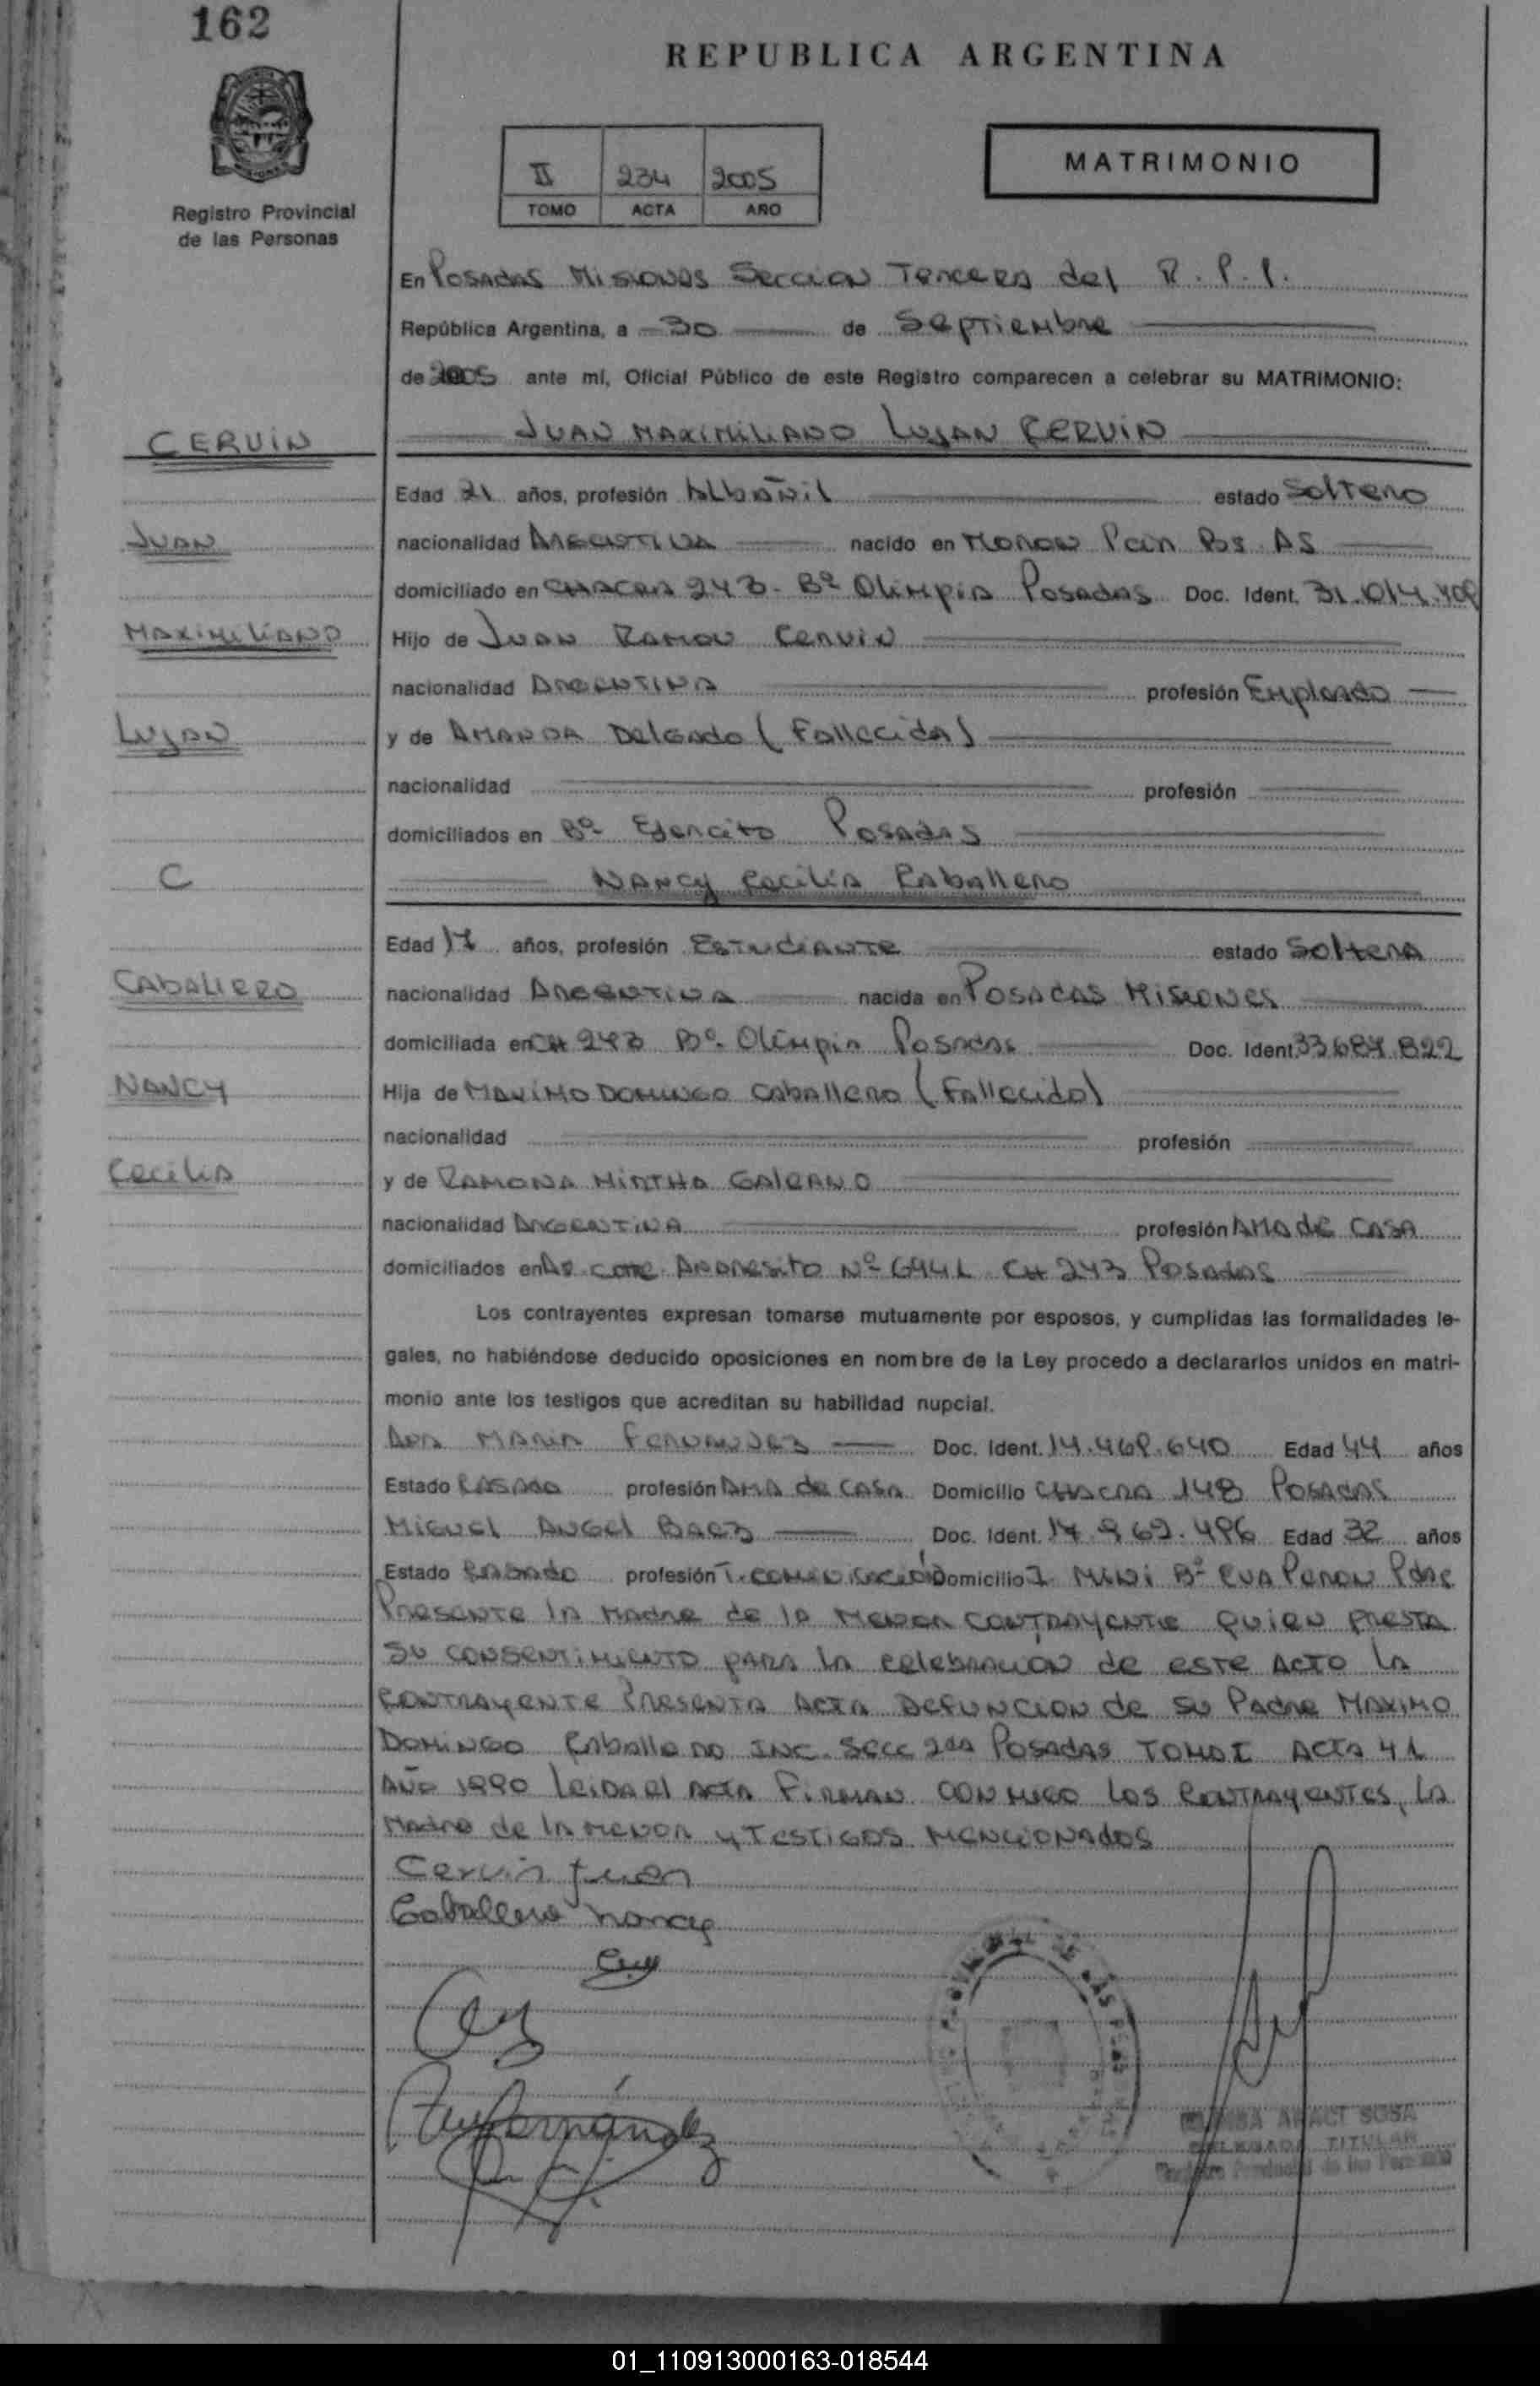 162
REPUBLICA ARGENTINA
II 234 2005
TOMO ACTA AÑO
MATRIMONIO
Registro Provincial
de las Personas
En Posadas Misiones Seccion Tercera del R.P.P.
República Argentina, a 30 de Septiembre
de 2005 ante mí, Oficial Público de este Registro comparecen a celebrar su MATRIMONIO:
CERVIN
JUAN MAXIMILIANO LUJAN CERVIN
Edad 21 años, profesión Albañil estado Soltero
JUAN
nacionalidad Argentina nacido en Moron Pcia Bs As
domiciliado en Chacra 243 - Bº Olimpia Posadas Doc. Ident. 31.014.408
MAXIMILIANO
Hijo de Juan Ramon Cervin
nacionalidad Argentina profesión Empleado
LUJAN
y de Amanda Delgado (Fallecida)
nacionalidad profesión
domiciliados en Bº Ejercito Posadas
C
Nancy Cecilia Caballero
Edad 17 años, profesión Estudiante estado Soltera
CABALLERO
nacionalidad Argentina nacida en Posadas Misiones
domiciliada en CH 243 Bº Olimpia Posadas Doc. Ident. 33.684.822
NANCY
Hija de Maximo Domingo Caballero (Fallecido)
nacionalidad profesión
Cecilia
y de Ramona Mirtha Galeano
nacionalidad Argentina profesión Ama de Casa
domiciliados en Av. Cdte. Andresito Nº 6941 CH 243 Posadas
Los contrayentes expresan tomarse mutuamente por esposos, y cumplidas las formalidades le-
gales, no habiéndose deducido oposiciones en nombre de la Ley procedo a declararlos unidos en matri-
monio ante los testigos que acreditan su habilidad nupcial.
Maria Fernandez Doc. Ident. 14.469.640 Edad 44 años
Estado Casado profesión Ama de Casa Domicilio Chacra 148 Posadas
Miguel Angel Baez Doc. Ident. 969.496 Edad 32 años
Estado Casado profesión T. Comunicació Domicilio Bº Eva Peron Pdas
Presente la Madre de la Menor contrayente quien presta
su consentimiento para la celebracion de este Acto la
contrayente Presenta Acta Defuncion de su Padre Maximo
Domingo Caballero INC. Secc 2da Posadas Tomo I Acta 41
Año 1990 Leida el Acta Firman conmigo los contrayentes, la
Madre de la Menor y Testigos Mencionados
Cervin Juan
Caballero Nancy
Fernández
ARACI SOSA
DELEGADA TITULAR
Registro Provincial de las Personas
01_110913000163-018544